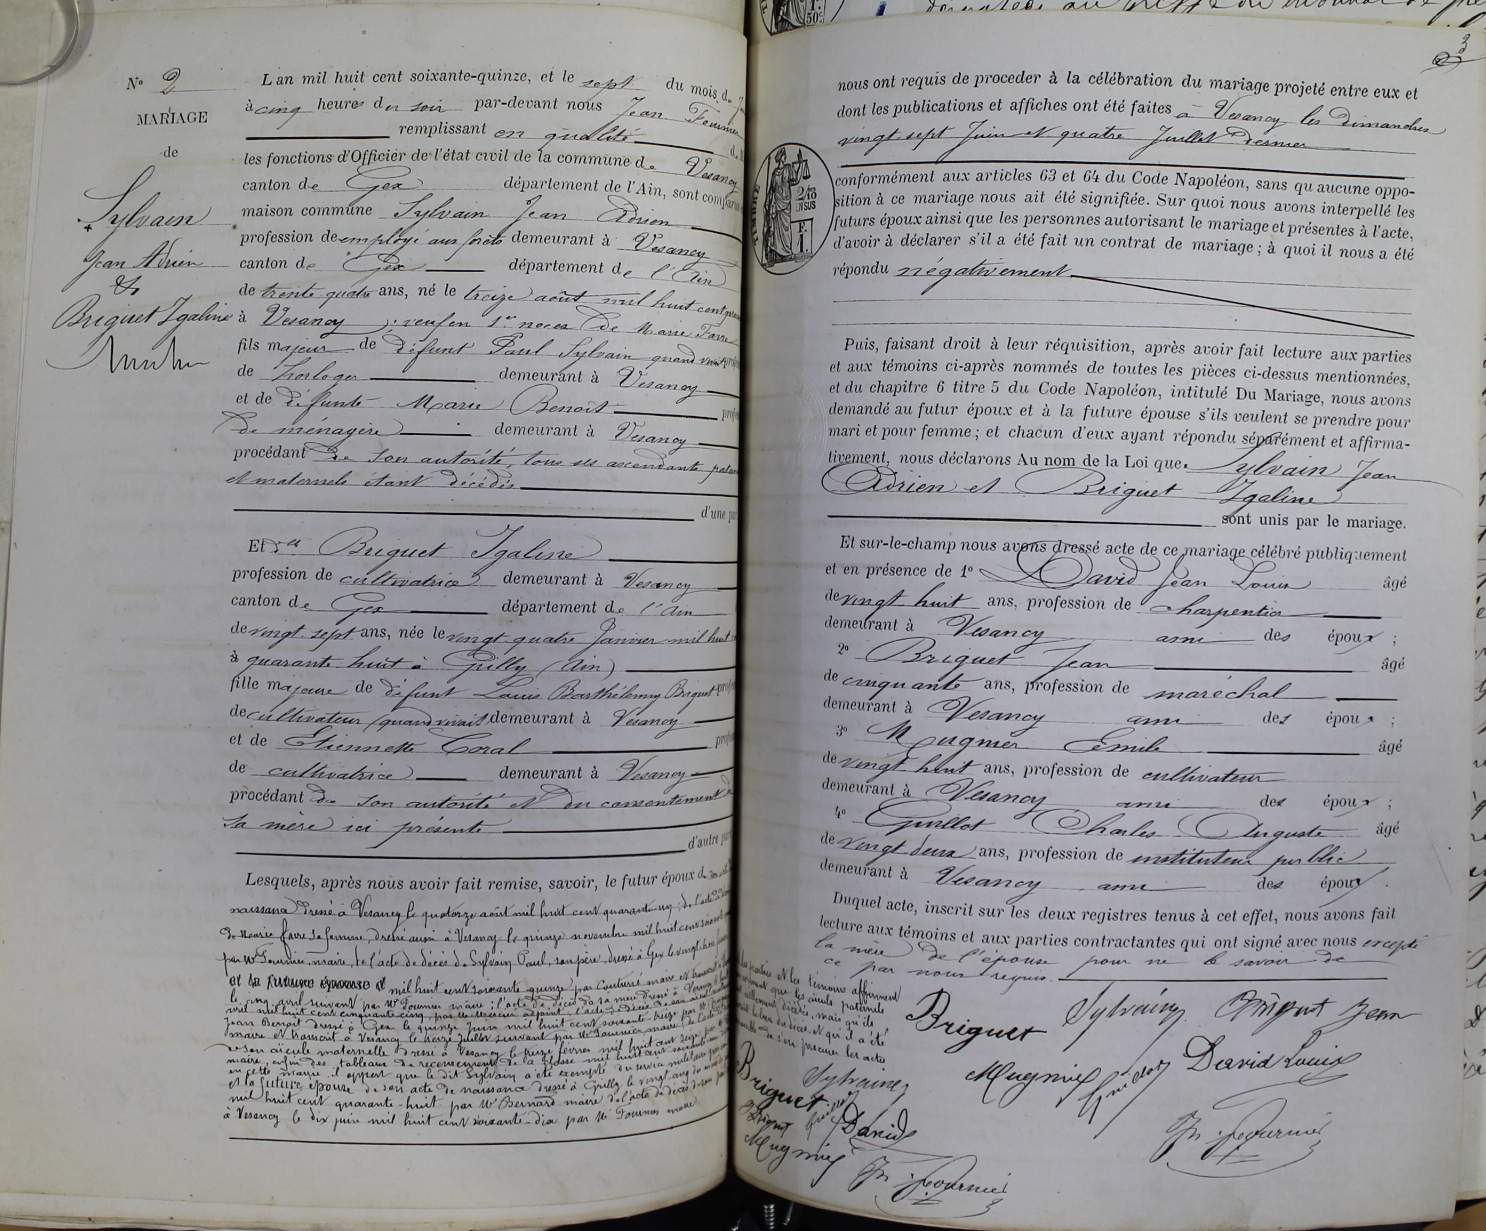 N° 2
MARIAGE
de
Sylvain
Jean Adrien
&
Briguet Igaline
L'an mil huit cent soixante-quinze, et le sept du mois de
à cinq heures du soir par-devant nous Jean Fournier
remplissant en qualité de
les fonctions d'Officier de l'état civil de la commune de Vesancy
canton de Gex département de l'Ain, sont comparus
maison commune Sylvain Jean Adrien
profession de employé aux forêts demeurant à Vesancy
canton de Gex département de l'Ain
de trente quatre ans, né le treize août mil huit cent
à Vesancy ; veuf en 1res noces de Marie Favre
fils majeur de défunt Paul Sylvain quand vivait
de horloger demeurant à Vesancy
et de défunte Marie Benoit
de ménagère demeurant à Vesancy
procédant de son autorité, tous ses ascendants
et maternels étant décédés
d'une part
Et Briguet Igaline
profession de cultivatrice demeurant à Vesancy
canton de Gex département de l'Ain
de vingt-sept ans, née le vingt quatre Janvier mil huit
à quarante huit à Grilly (Ain)
fille majeure de défunt Louis Barthélemy Briguet
de cultivateur quand vivait demeurant à Vesancy
et de Etiennette Coral
de cultivatrice demeurant à Vesancy
procédant de son autorité et du consentement de
sa mère ici présente
d'autre part
Lesquels, après nous avoir fait remise, savoir, le futur époux de
naissance dressé à Vesancy le quatorze août mil huit cent quarante-un ; de l'acte
de Marie Favre sa femme, dressé aussi à Vesancy le quinze novembre mil huit cent
par Mr Fournier, maire, de l'acte de décès de Sylvain Paul, son père, dressé à Gex le vingt
et la future épouse mil huit cent soixante quinze par maire et
le cinq avril suivant par Mr Fournier maire ; l'acte de décès de sa mère dressé à Vesancy
mil huit cent cinquante cinq, par adjoint, l'acte de décès de son
Jean Benoit dressé à Gex le quinze Juin mil huit cent soixante treize par Mr
maire et transcrit à Vesancy le treize Juillet suivant par Mr Fournier maire ; de l'acte
de son aïeule maternelle dressé à Vesancy le treize février mil huit cent
maire, enfin des tableaux de recensement de la classe mil huit cent soixante
en cette mairie il appert que le dit Sylvain a été exempté du service militaire
et la future épouse, de son acte de naissance dressé à Grilly le vingt-cinq du mois
mil huit cent quarante-huit par Mr Bernard maire de l'acte de décès de son père
à Vesancy le dix juin mil huit cent soixante-dix par Mr Fournier maire
3
nous ont requis de procéder à la célébration du mariage projeté entre eux et
dont les publications et affiches ont été faites à Vesancy les dimanches
vingt sept Juin et quatre Juillet dernier
TIMBRE
conformément aux articles 63 et 64 du Code Napoléon, sans qu'aucune oppo-
sition à ce mariage nous ait été signifiée. Sur quoi nous avons interpellé les
futurs époux ainsi que les personnes autorisant le mariage et présentes à l'acte,
d'avoir à déclarer s'il a été fait un contrat de mariage ; à quoi il nous a été
répondu négativement
Puis, faisant droit à leur réquisition, après avoir fait lecture aux parties
et aux témoins ci-après nommés de toutes les pièces ci-dessus mentionnées,
et du chapitre 6 titre 5 du Code Napoléon, intitulé Du Mariage, nous avons
demandé au futur époux et à la future épouse s'ils veulent se prendre pour
mari et pour femme ; et chacun d'eux ayant répondu séparément et affirma-
tivement, nous déclarons Au nom de la Loi que Sylvain Jean
Adrien et Briguet Igaline
sont unis par le mariage.
Et sur-le-champ nous avons dressé acte de ce mariage célébré publiquement
et en présence de 1° David Jean Louis âgé
de vingt huit ans, profession de charpentier
demeurant à Vesancy ami des époux ;
2° Briguet Jean âgé
de cinquante ans, profession de maréchal
demeurant à Vesancy ami des époux ;
3° Mugnier Emile âgé
de vingt huit ans, profession de cultivateur
demeurant à Vesancy ami des époux ;
4° Guillot Charles Auguste âgé
de vingt deux ans, profession de instituteur public
demeurant à Vesancy ami des époux.
Duquel acte, inscrit sur les deux registres tenus à cet effet, nous avons fait
lecture aux témoins et aux parties contractantes qui ont signé avec nous excepté
la mère de l'épouse pour ne le savoir de
ce par nous requis
les parties et les témoins affirment
que les aïeuls paternels
décédés, mais qu'ils
lieu du décès et qu'il a été
de s'en procurer les actes
Briguet Sylvain Briguet Jean
Mugnier Guillot David Louis
Jn. Fournier
Sylvain
Briguet Guillot
Briguet David
Mugnier
Jn. Fournier